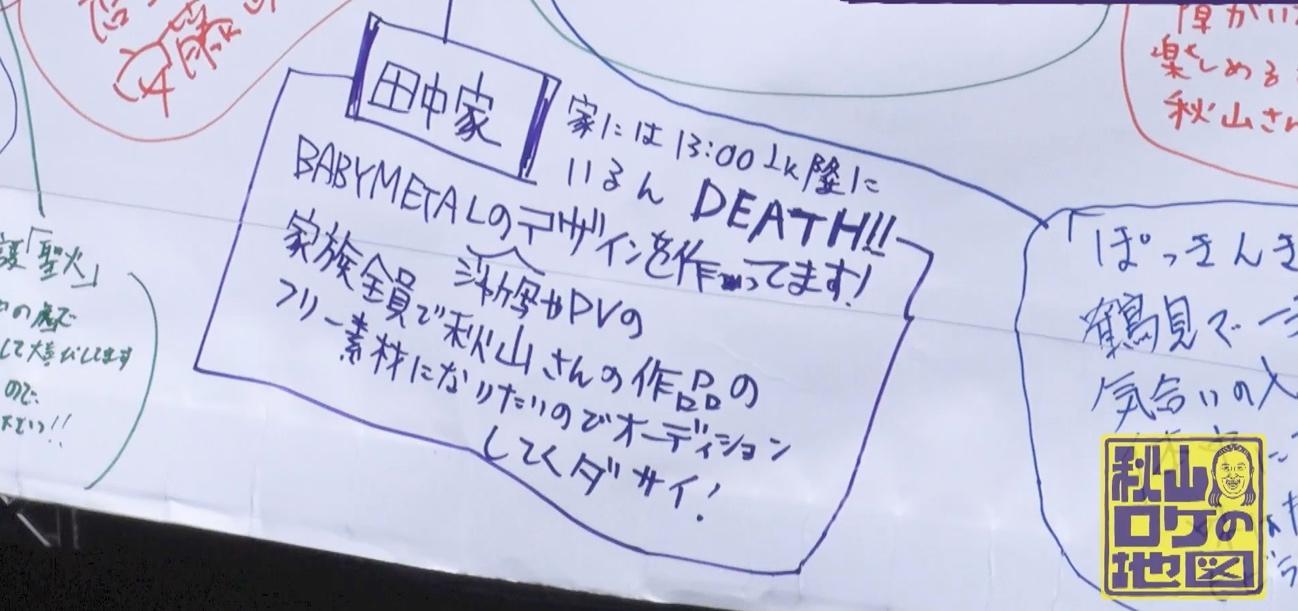 安藤
障がい
楽しめる
秋山さん
田中家
家には13:00以降に
いるんDEATH!!
BABYMETALのデザインを作ってます!
ジャケ写やPVの
家族全員で秋山さんの作品の
フリー素材になりたいのでオーディション
してくダサイ!
「聖火」
して大喜びしてます
ので、
「ぽっきんき
鶴見で一
気合いの入
秋山
ロケの
地図